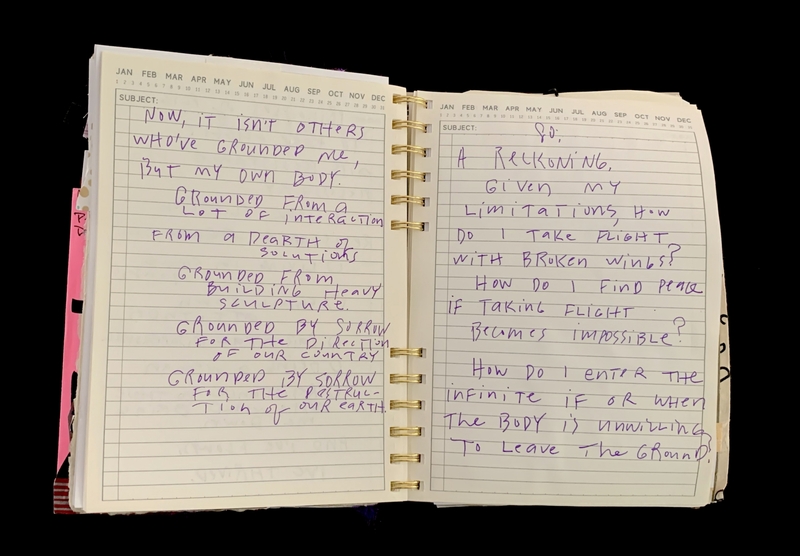 JAN FEB MAR APR MAY JUN JUL AUG SEP OCT NOV DEC
SUBJECT:
NOW, IT ISN'T OTHERS
WHO'VE GROUNDED ME,
BUT MY OWN BODY.
GROUNDED FROM A
LOT OF INTERACTION
FROM A DEARTH OF
SOLUTIONS
GROUNDED FROM
BUILDING HEAVY
SCULPTURE.
GROUNDED BY SORROW
FOR THE DIRECTION
OF OUR COUNTRY
GROUNDED BY SORROW
FOR THE DESTRUC-
TION OF OUR EARTH.
JAN FEB MAR APR MAY JUN JUL AUG SEP OCT NOV DEC
SUBJECT:
So,
A RECKONING.
GIVEN MY
LIMITATIONS, HOW
DO I TAKE FLIGHT
WITH BROKEN WINGS?
HOW DO I FIND PEACE
IF TAKING FLIGHT
BECOMES IMPOSSIBLE?
HOW DO I ENTER THE
INFINITE IF OR WHEN
THE BODY IS UNWILLING
TO LEAVE THE GROUND?